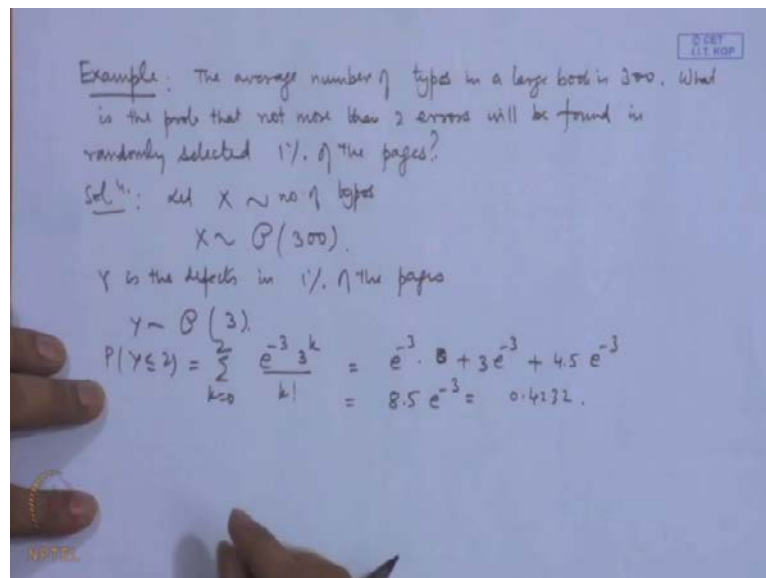 © CET
I.I.T. KGP
Example: The average number of typos in a large book is 300. What
is the prob that not more than 2 errors will be found in
randomly selected 1% of the pages?
Solⁿ: Let X ~ no of typos
X ~ P(300).
Y is the defects in 1% of the pages
Y ~ P(3).
P(Y≤2) = ∑_{k=0}^{2} e^{-3} 3^k / k! = e^{-3} + 3e^{-3} + 4.5 e^{-3}
= 8.5 e^{-3} = 0.4232.
NPTEL